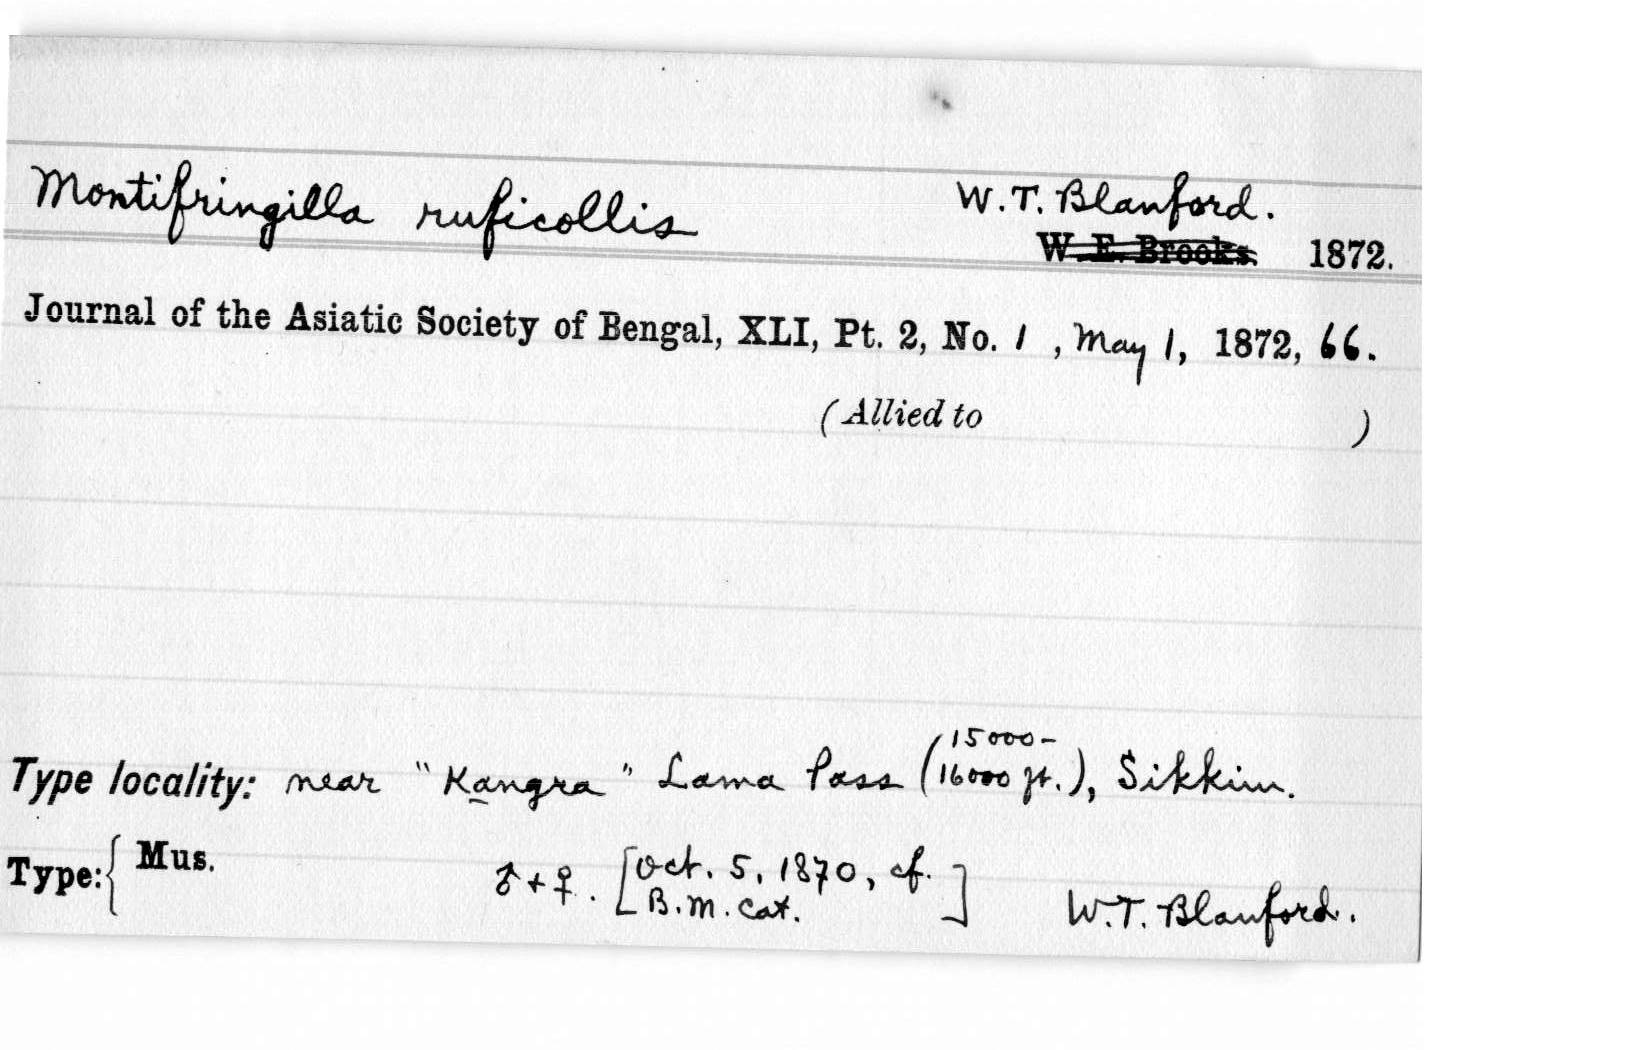 Montifringilla ruficollis W.T. Blanford.
W. E. Brooks. 1872.
Journal of the Asiatic Society of Bengal, XLI, Pt. 2, No. 1 , May 1, 1872, 66.
(Allied to )
Type locality: near "Kangra" Lama Pass (15000-16000 ft.), Sikkim.
Type: { Mus. ♂ + ♀. [Oct. 5, 1870, cf. B.M. Cat.] W.T. Blanford.